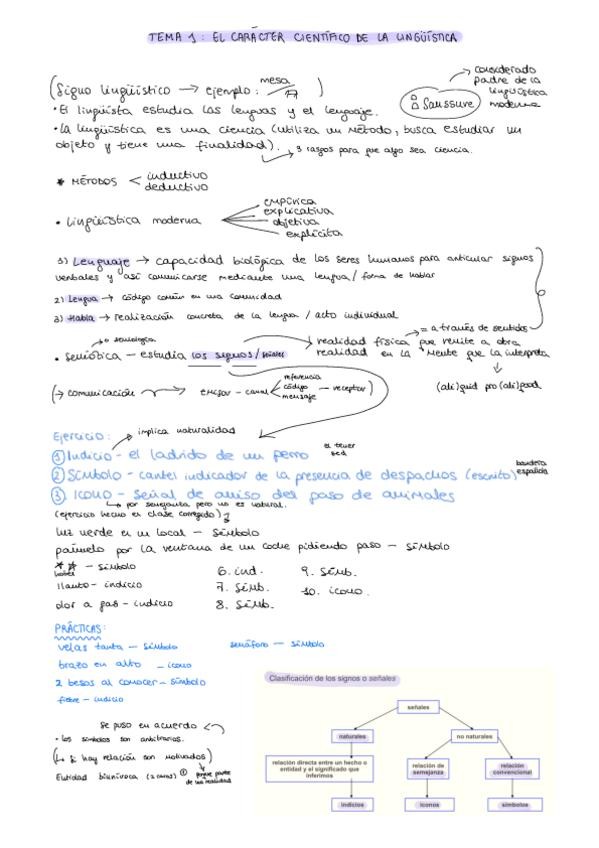 TEMA 1: EL CARÁCTER CIENTÍFICO DE LA LINGÜÍSTICA
(Signo lingüístico → ejemplo: mesa )
→ considerado padre de la lingüística moderna
Saussure
• El lingüista estudia las lenguas y el lenguaje.
• La lingüística es una ciencia (utiliza un método, busca estudiar un
objeto y tiene una finalidad).
→ 3 rasgos para que algo sea ciencia.
* MÉTODOS < inductivo
deductivo
• Lingüística moderna
empírica
explicativa
objetiva
explícita
1) Lenguaje → capacidad biológica de los seres humanos para articular signos
verbales y así comunicarse mediante una lengua / forma de hablar
2) Lengua → código común en una comunidad
3) Habla → realización concreta de la lengua / acto individual
→ o semiología
= a través de sentidos
• Semiótica – estudia los signos/señales
realidad física que remite a otra
realidad en la mente que la interpreta
(ali)quid pro (ali)quod
(→ comunicación → emisor – canal
referencia
código
mensaje
– receptor)
Ejercicio:
implica naturalidad
① Indicio – el ladrido de un perro
el tener sed
② Símbolo – cartel indicador de la presencia de despachos (escrito)
bandera española
③ Icono – Señal de aviso del paso de animales
→ por semejanza pero no es natural.
(ejercicio hecho en clase corregido)
luz verde en un local – símbolo
pañuelo por la ventana de un coche pidiendo paso – símbolo
** – símbolo
hotel
llanto – indicio
olor a gas – indicio
6. ind.
7. símb.
8. símb.
9. símb.
10. icono.
PRÁCTICAS:
velas tarta – símbolo
semáforo – símbolo
brazo en alto – icono
2 besos al conocer – símbolo
fiebre – indicio
se puso en acuerdo
• los símbolos son arbitrarios.
(→ si hay relación son motivados)
Entidad biunívoca (2 caras)
porque parte de una realidad
Clasificación de los signos o señales
señales
naturales
no naturales
relación directa entre un hecho o
entidad y el significado que
inferimos
relación de
semejanza
relación
convencional
indicios
iconos
símbolos